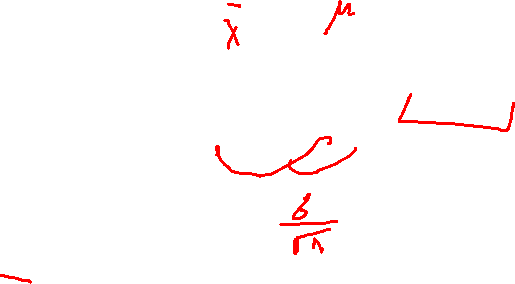 x̄ μ
σ/√n